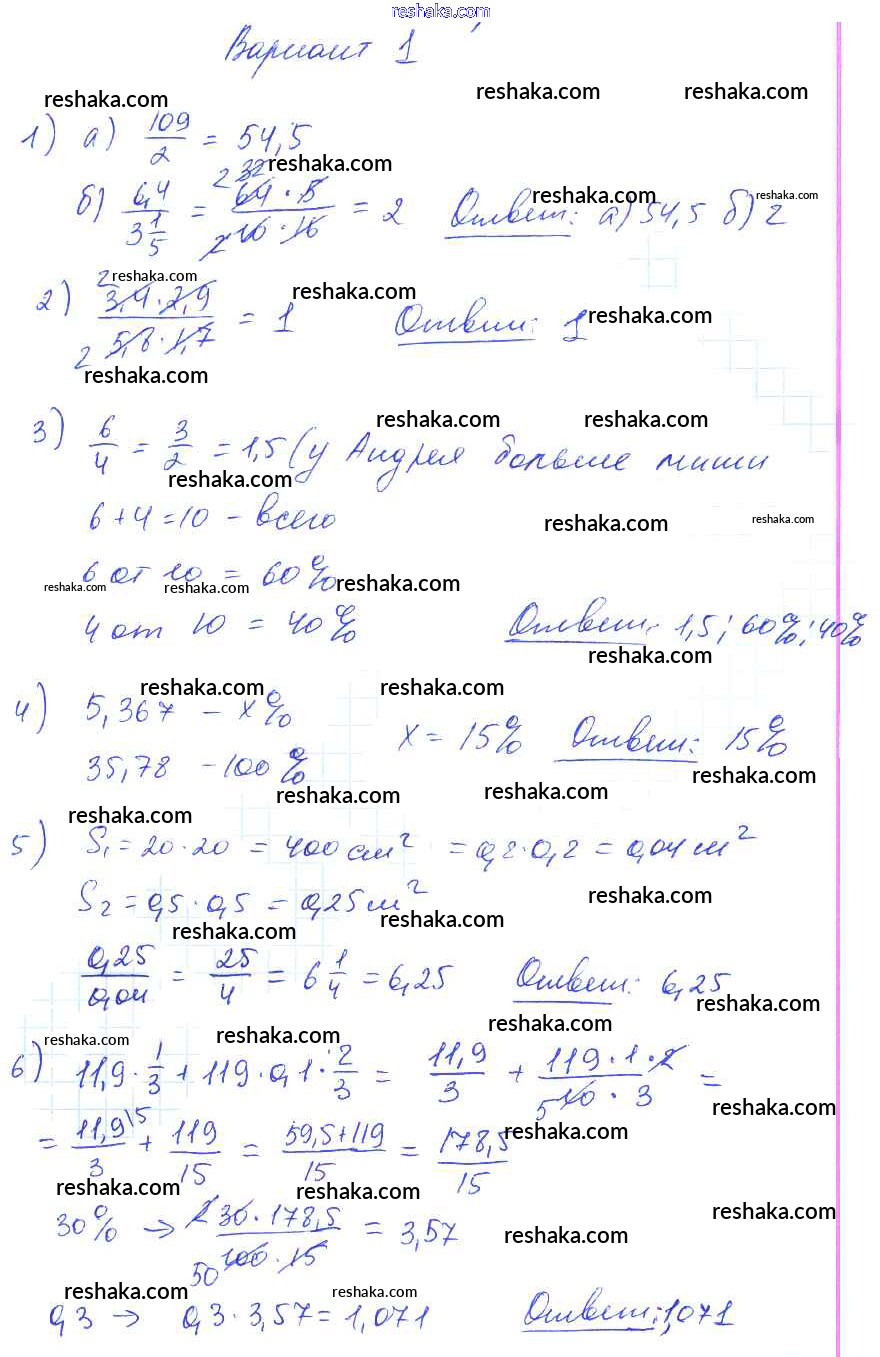 reshaka.com
Вариант 1
reshaka.com reshaka.com reshaka.com
1) а) 109/2 = 54,5
reshaka.com
б) 6,4/3 1/5 = 64·5/10·16 = 2 Ответ: а) 54,5 б) 2
reshaka.com reshaka.com
reshaka.com reshaka.com
2) 3,4·2,9/5,8·1,7 = 1 Ответ: 1
reshaka.com
reshaka.com
reshaka.com reshaka.com
3) 6/4 = 3/2 = 1,5 (у Андрея больше миши
reshaka.com
6+4=10 – всего
reshaka.com reshaka.com
6 от 10 = 60%
reshaka.com reshaka.com reshaka.com
4 от 10 = 40% Ответ: 1,5; 60%; 40%
reshaka.com
reshaka.com reshaka.com
4) 5,367 – x%
x = 15% Ответ: 15%
35,78 – 100%
reshaka.com reshaka.com reshaka.com
reshaka.com
5) S₁ = 20·20 = 400 см² = 0,2·0,2 = 0,04 м²
S₂ = 0,5·0,5 = 0,25 м²
reshaka.com
reshaka.com reshaka.com
0,25/0,04 = 25/4 = 6 1/4 = 6,25 Ответ: 6,25
reshaka.com
reshaka.com reshaka.com reshaka.com
6) 11,9·1/3 + 119·0,1·2/3 = 11,9/3 + 119·1·2/10·3 =
reshaka.com
= 11,9\5/3 + 119/15 = 59,5+119/15 = 178,5/15
reshaka.com
reshaka.com reshaka.com
30% → 30·178,5/100·15 = 3,57
reshaka.com reshaka.com
reshaka.com reshaka.com
0,3 → 0,3·3,57 = 1,071 Ответ: 1,071